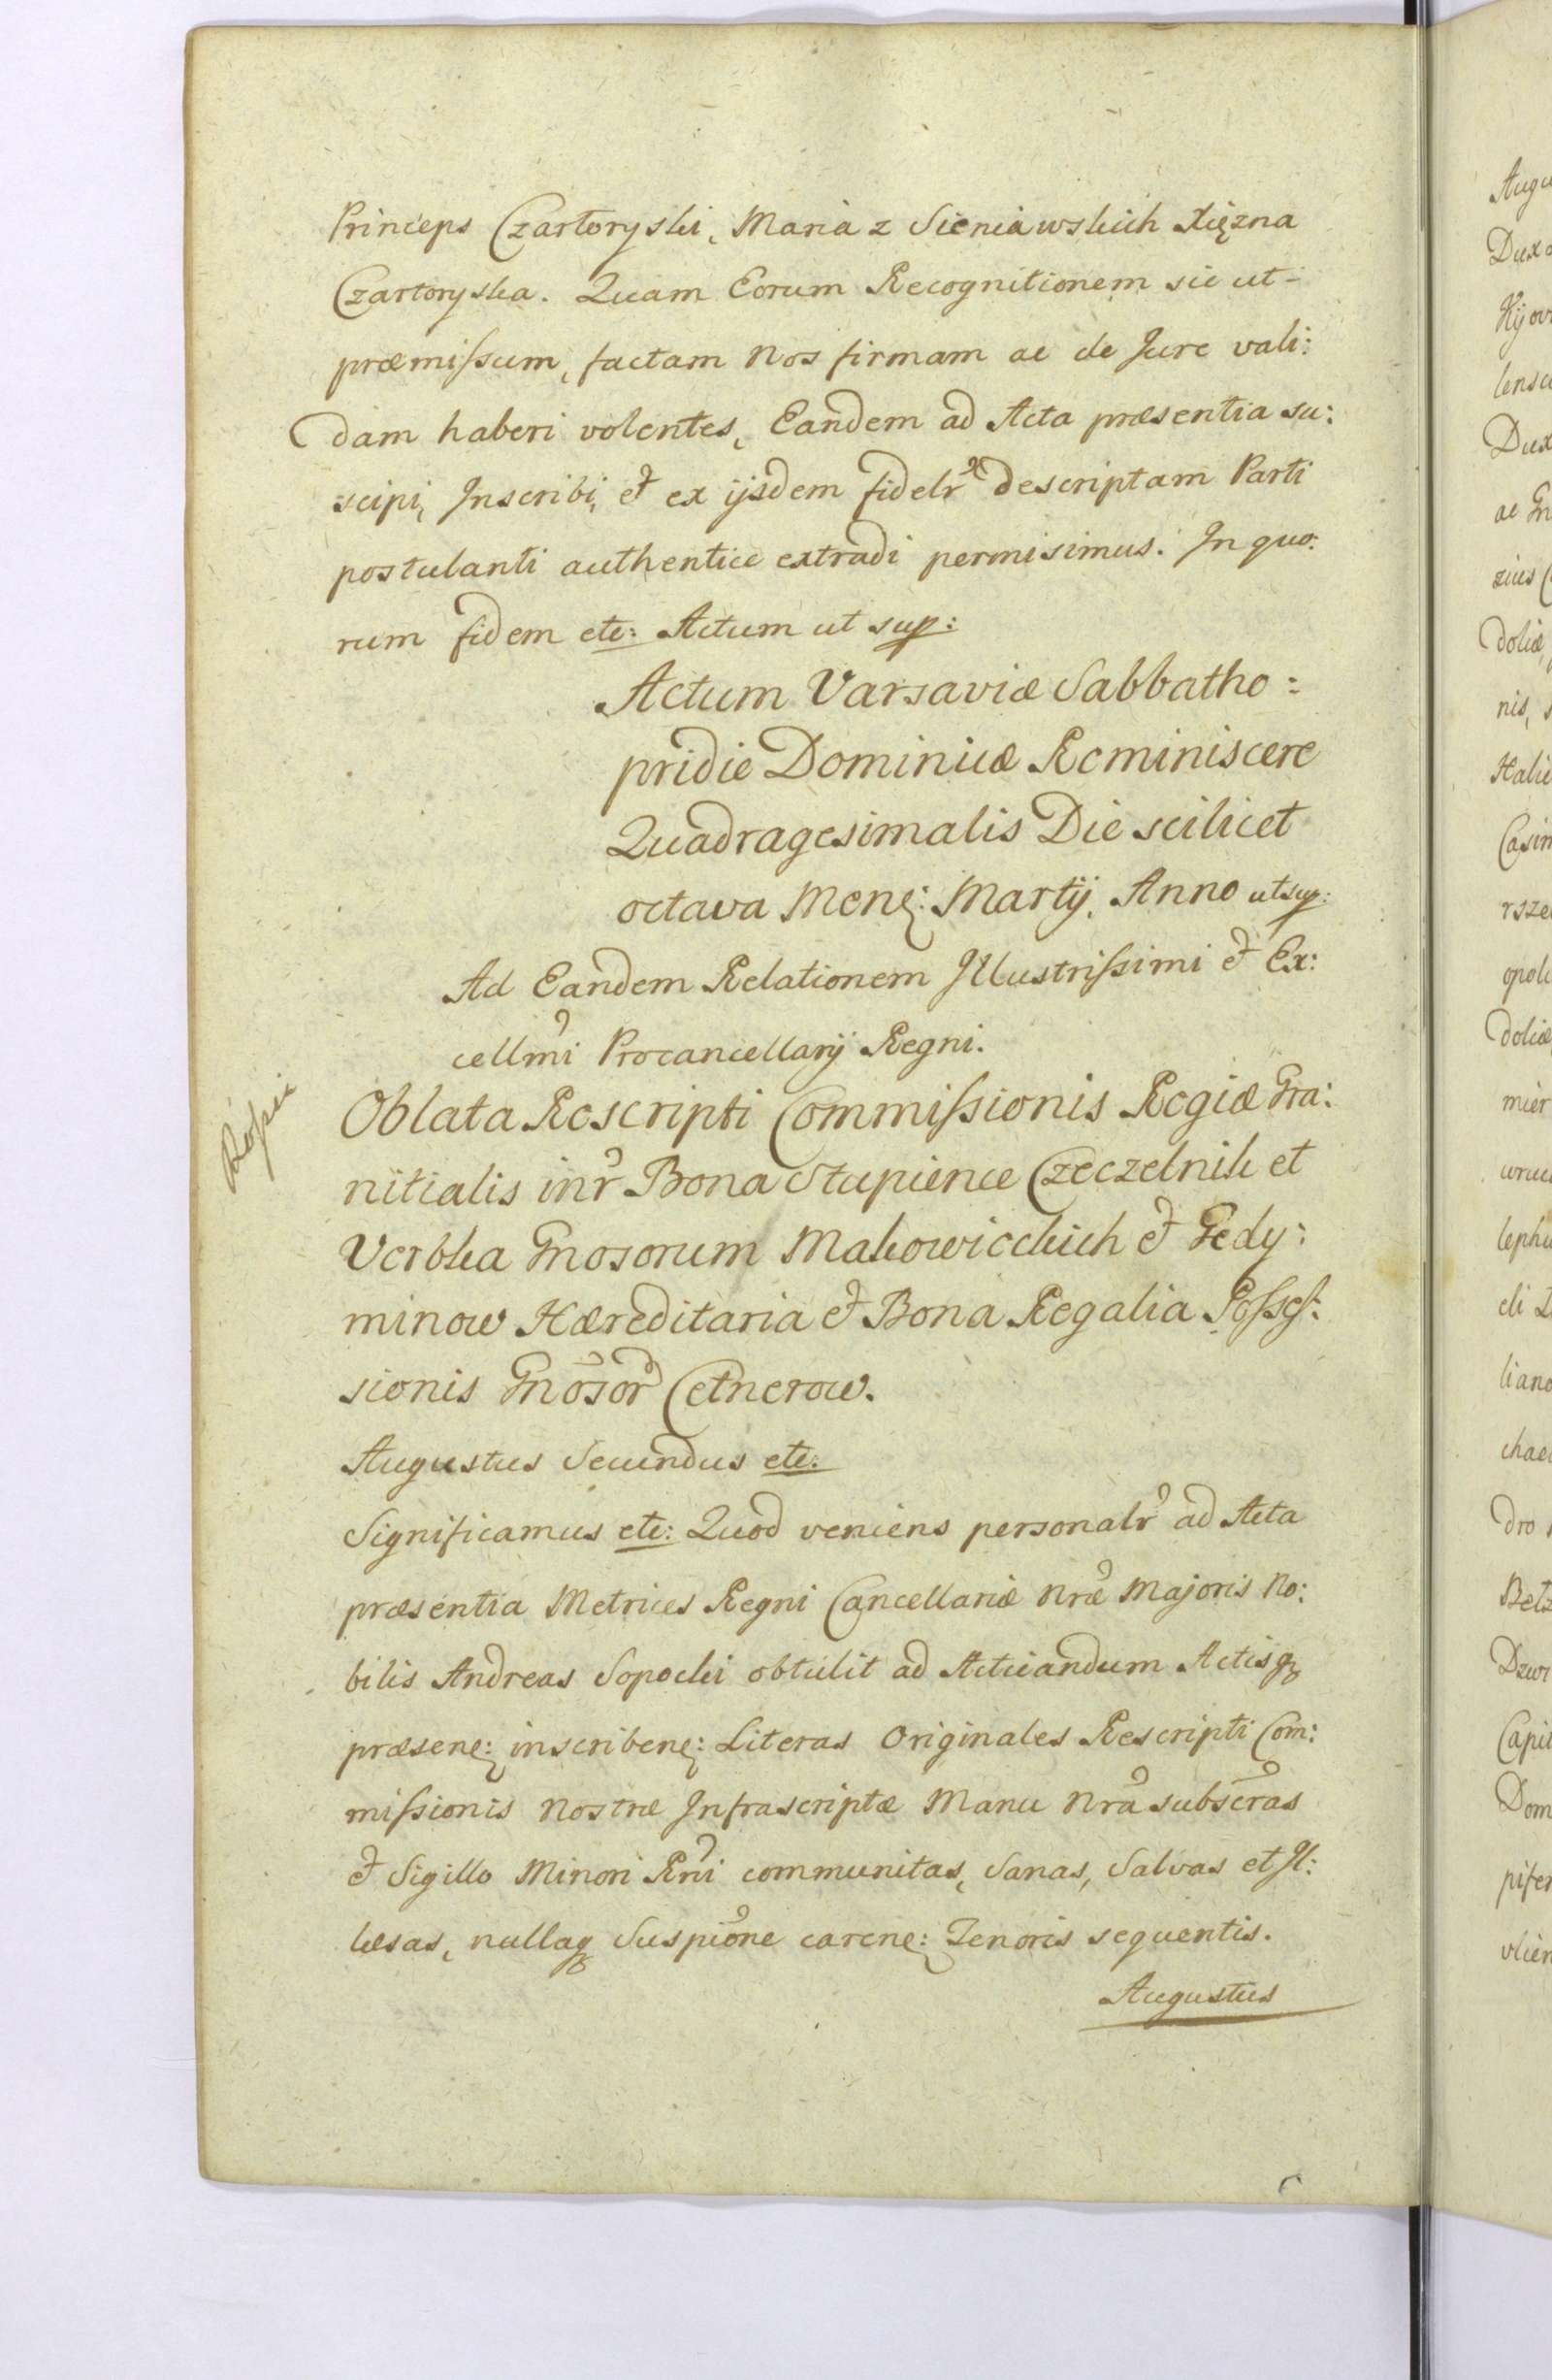 Princeps Czartoryski, Maria z Sieniawskich Xięzna
Czartoryska. Quam Eorum Recognitionem sic ut-
præmissum, factam Nos firmam ac de Jure vali:
dam haberi volentes, Eandem ad Acta præsentia su:
scipi, Inscribi, et ex ijsdem fidelr descriptam Parti
postulanti authentice extradi permisimus. In quo:
rum fidem etc: Actum ut sup:
Actum Varsaviæ Sabbatho =
pridie Dominicæ Reminiscere
Quadragesimalis Die scilicet
octava Mens: Martij, Anno ut sup:
Ad Eandem Relationem Illustrissimi et Ex:
cellmi Procancellarij Regni.
Oblata Rescripti Commissionis Regiæ Gra:
nitialis intr Bona Stupience Czeczelnik et
Verbka Gnosorum Makowieckich et Gedy:
minow Hæreditaria et Bona Regalia Posses:
sionis Gnosor Cetnerow.
Augustus Secundus etc.
Significamus etc: Quod veniens personalr ad Acta
præsentia Metrices Regni Cancellariæ Nræ Majoris No:
bilis Andreas Sopocki obtulit ad Acticandum Actisq
præsene: inscribene: Literas Originales Rescripti Com:
missionis Nostræ Infrascriptæ Manu Nra subscras
et Sigillo Minori Rni communitas, Sanas, Salvas et Il:
læsas, nullaq Suspicione carene: Tenoris sequentis.
Augustus
Augu
Dux
Kijov
lensc
Dux
ac Gn
zius
doliæ
nis,
Halic
Casim
rsze
opol
doliæ
mier
lephu
eli
liano
chae
dro
Belz
Capit
Dom
pifer